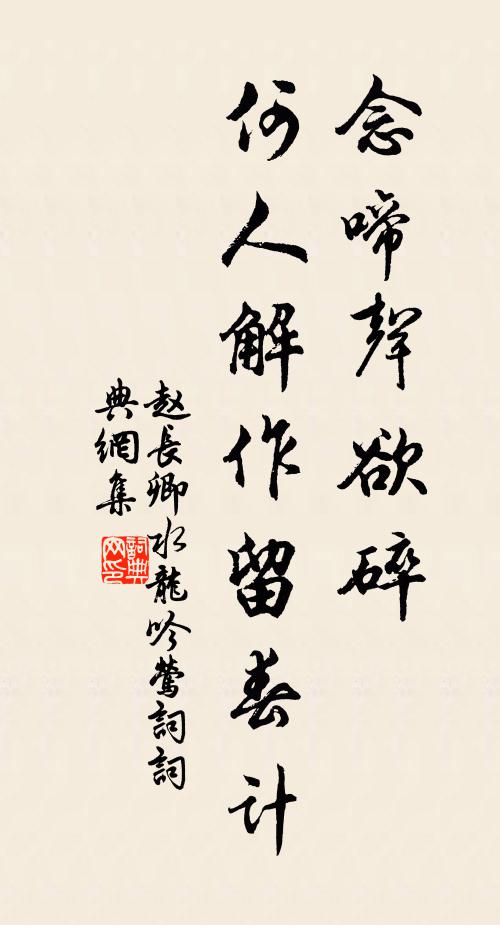 念啼聲欲碎
何人解作留春計
赵長卿水龍吟鶯詞詞
典網集
詞典网印